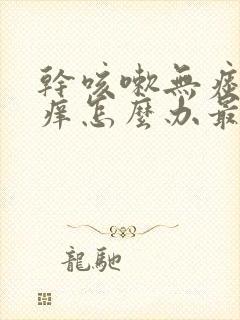 幹咳嗽無痰
癢怎麼办最
龍馳